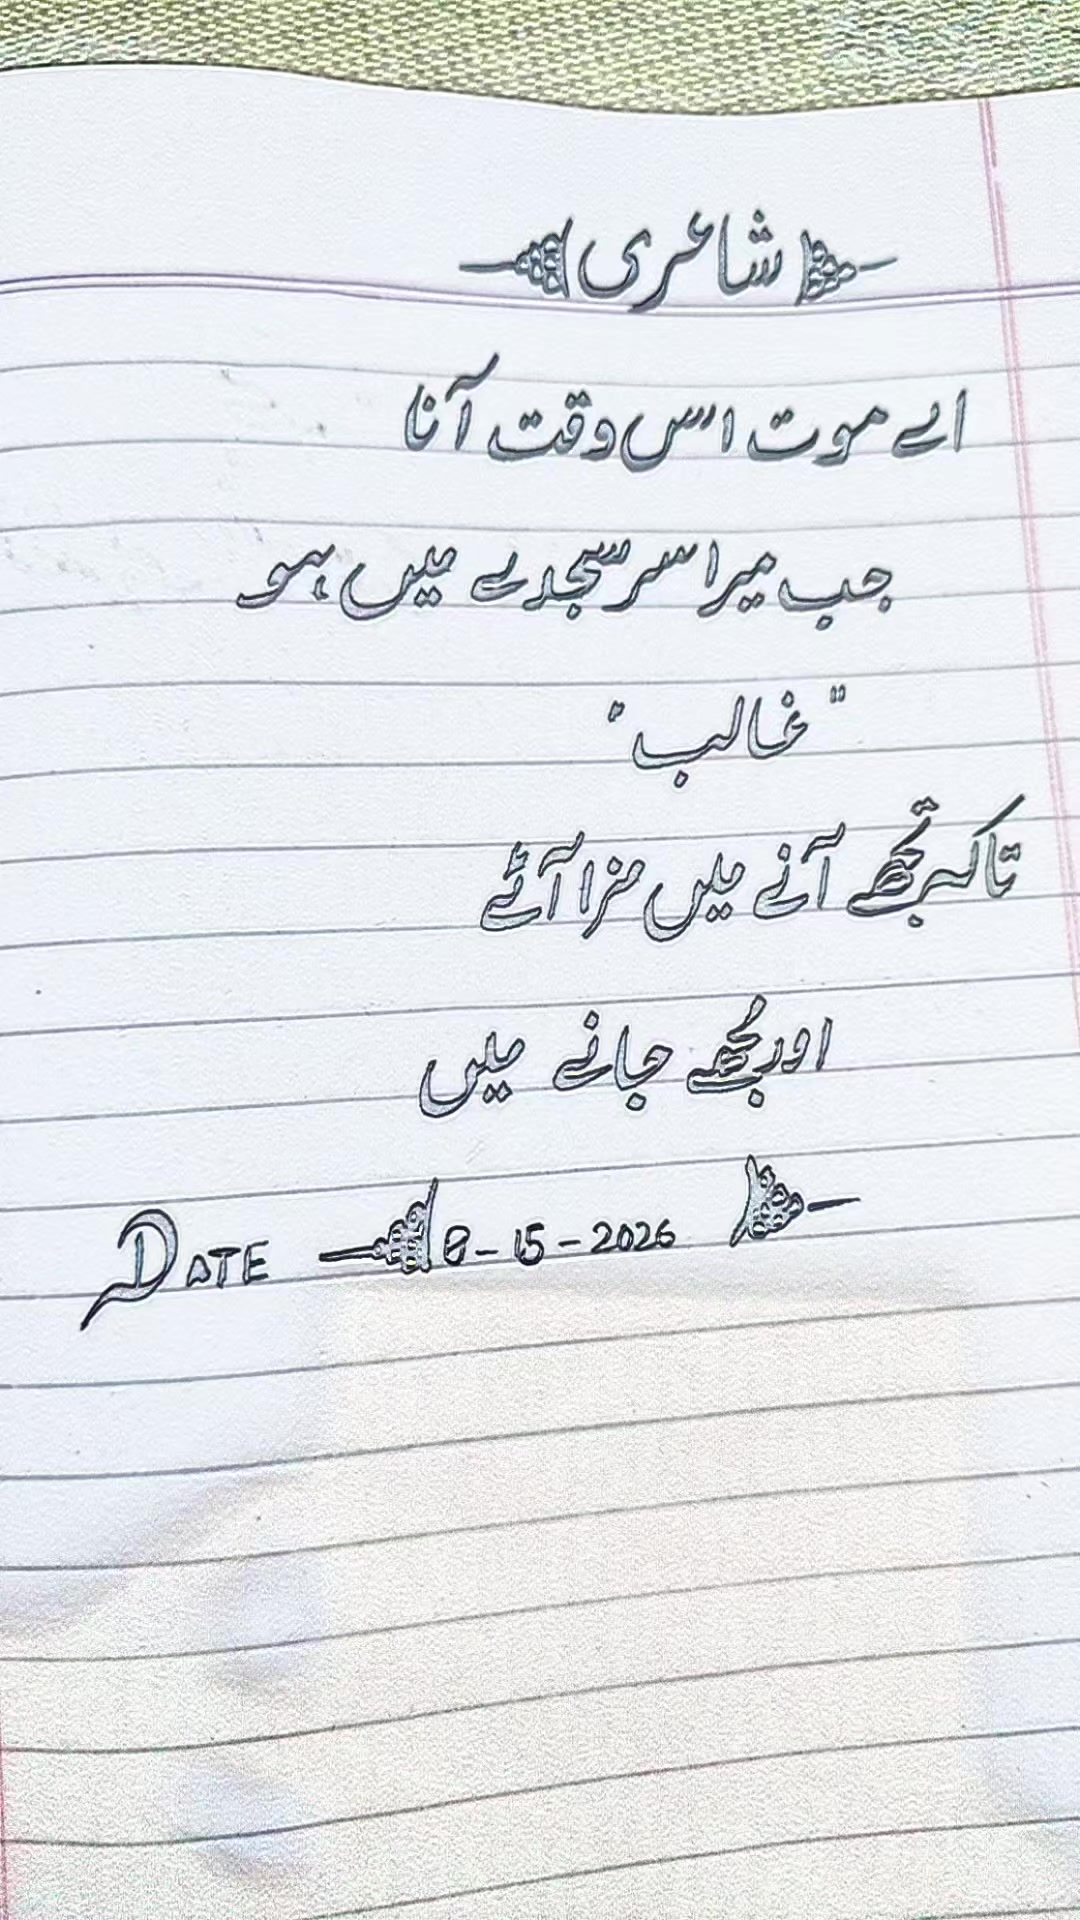 شاعری
اے موت اس وقت آنا
جب میرا سر سجدے میں ہو
"غالب"
تاکہ تجھے آنے میں مزا آئے
اور مجھے جانے میں
DATE 8-15-2026